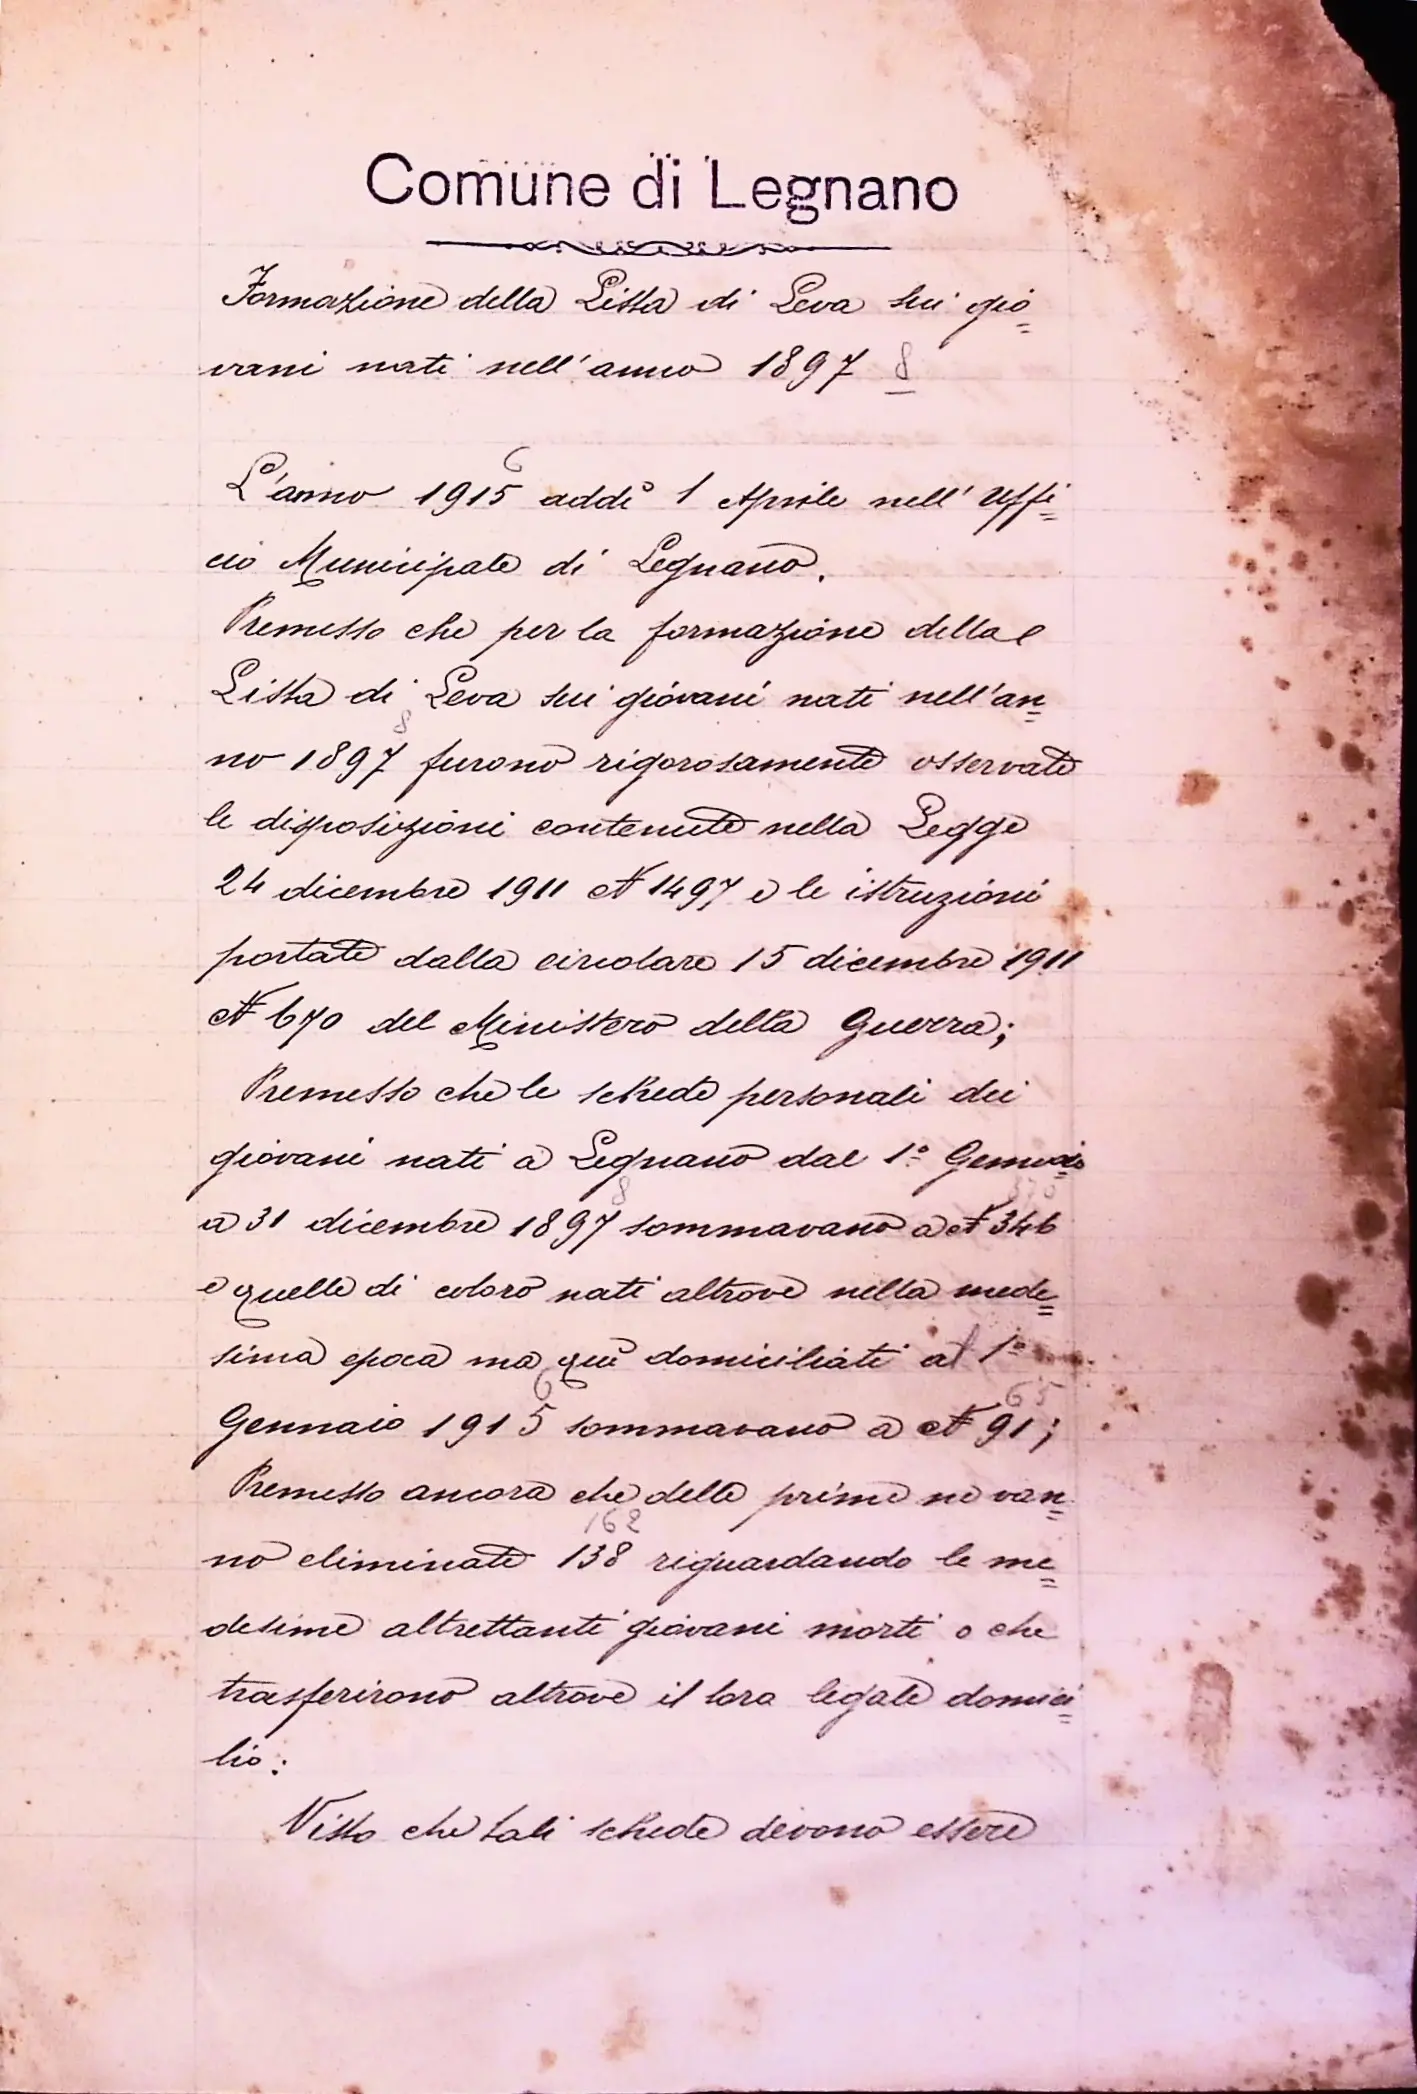 Comune di Legnano
Formazione della Lista di Leva sui gio=
vani nati nell'anno 1897 8
6
L'anno 1915 addì 1 Aprile nell'Uffi=
cio Municipale di Legnano.
Premesso che per la formazione della
Lista di Leva sui giovani nati nell'an=
8
no 1897 furono rigorosamente osservate
le disposizioni contenute nella Legge
24 dicembre 1911 N 1497 e le istruzioni
portate dalla circolare 15 dicembre 1911
N 670 del Ministero della Guerra;
Premesso che le schede personali dei
giovani nati a Legnano dal 1º Gennaio
8
a 31 dicembre 1897 sommavano a N 346
e quelle di coloro nati altrove nella mede=
sima epoca ma quì domiciliati al 1º
6 65
Gennaio 1915 sommavano a N 91;
Premesso ancora che delle prime ne van=
162
no eliminate 138 riguardando le me=
desime altrettanti giovani morti o che
trasferirono altrove il loro legale domici=
lio:
Visto che tali schede devono essere